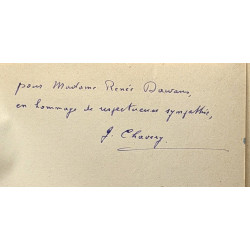 pour Madame Renée Dawans,
en hommage de respectueuse sympathie,
J. Chavery